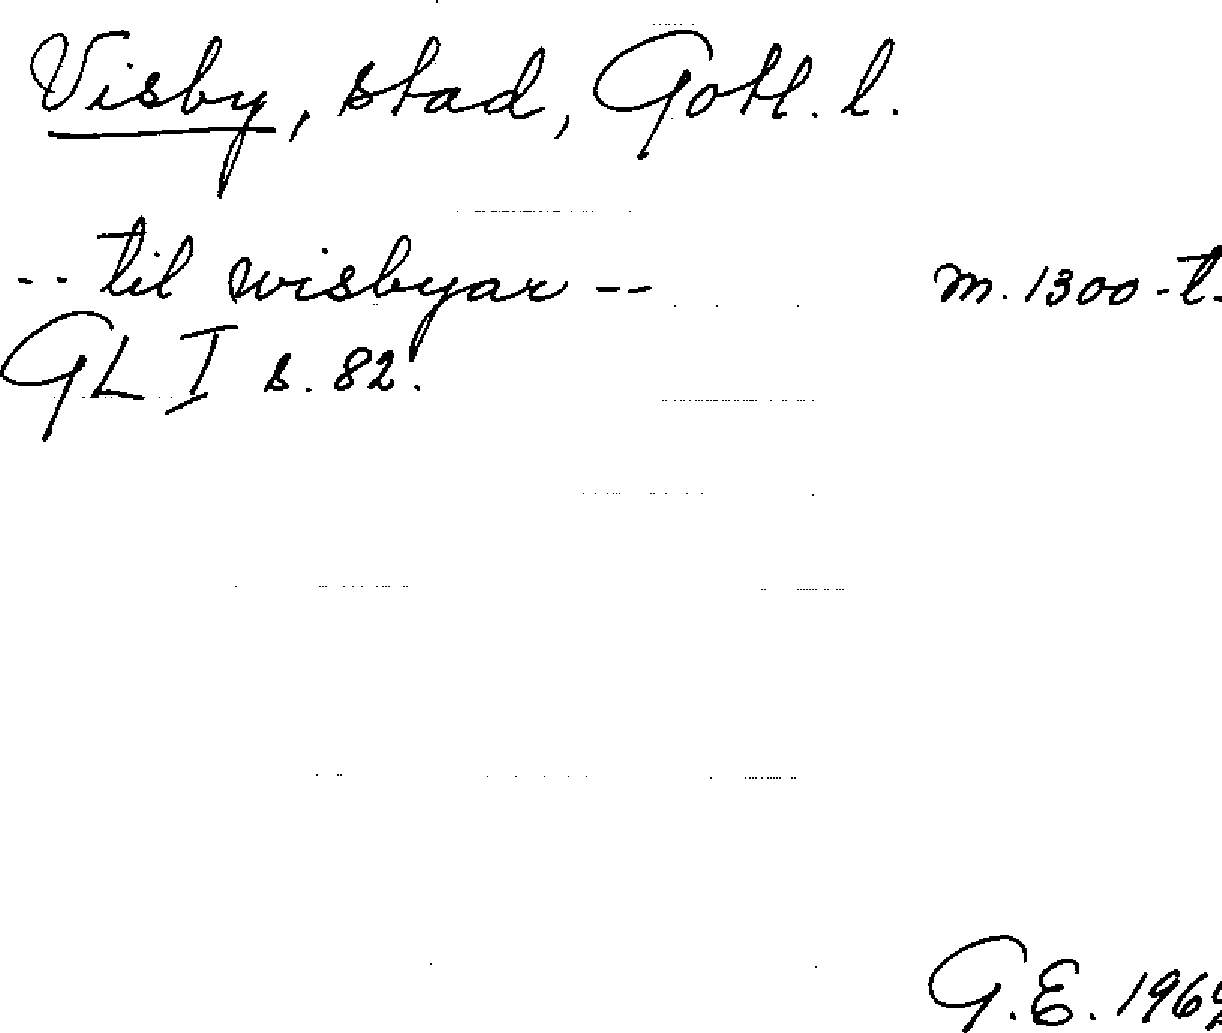 Visby, stad, Gotl. l.
-- til wisbyar -- m. 1300-t.
GL I s. 82.
G.E.